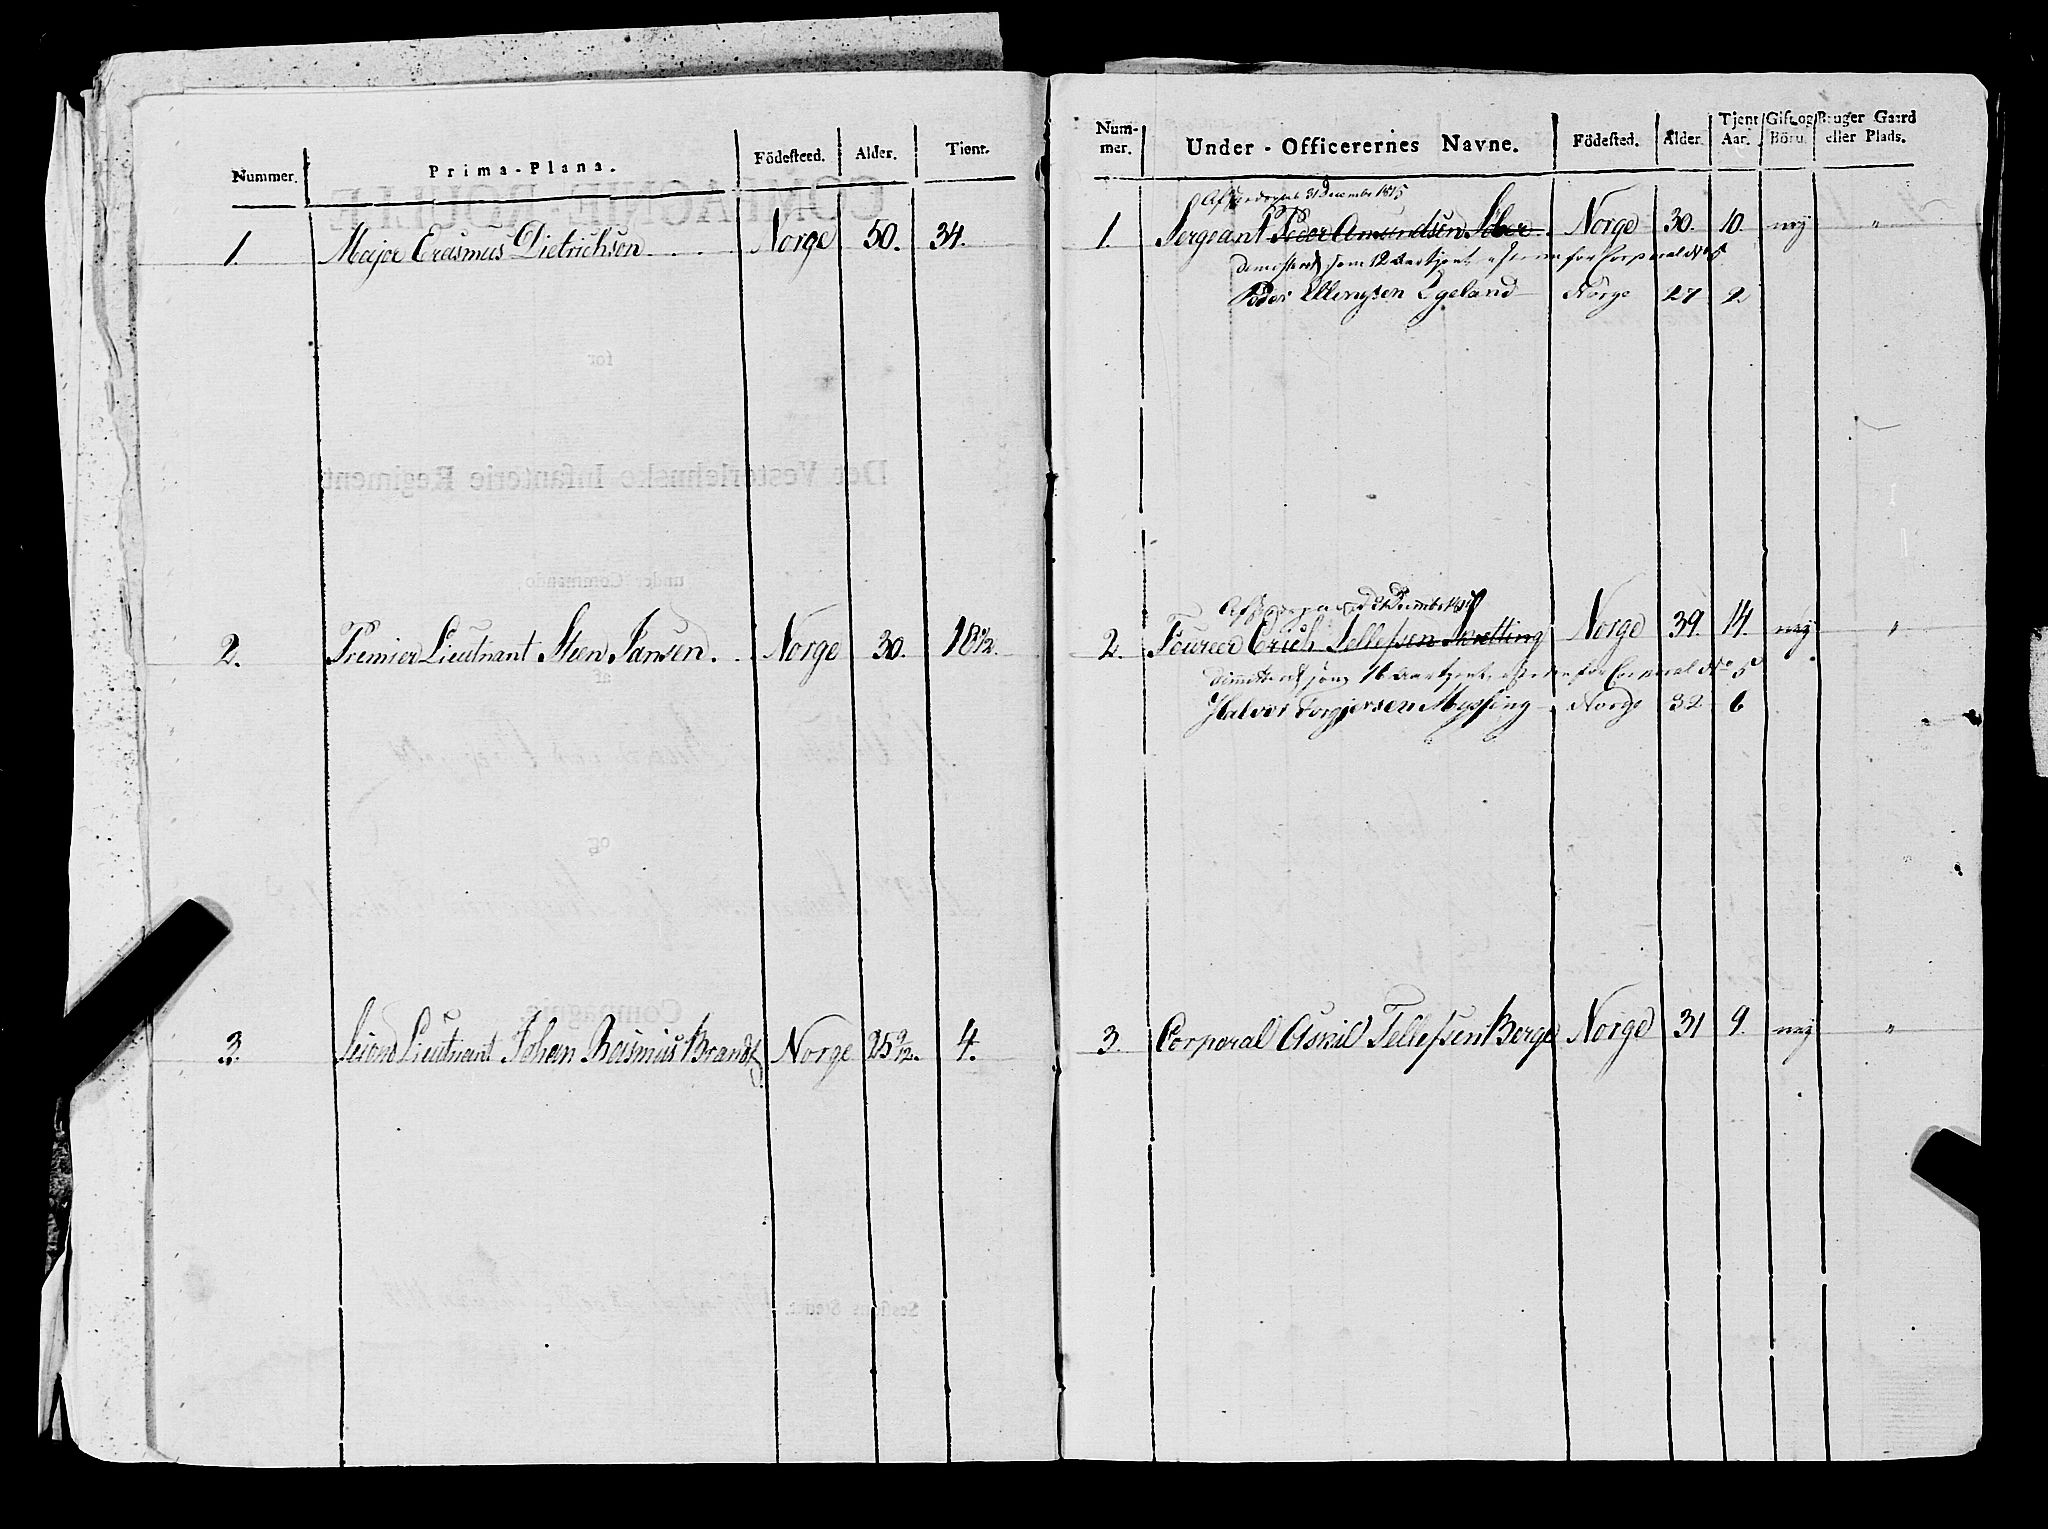 Nummer. Prima-Plana. Födesteed. Alder. Tient.
1. Major Erasmus Dietrichson Norge 50. 34.
2. Premier Lieutnant Steen Jansen. Norge 30. 18½.
3. Second Lieutnant Johan Rasmus Brandt Norge 25 9/12. 4.
Num-mer. Under-Officerernes Navne. Födested. Alder. Tjent Aar. Gift og Börn. Bruger Gaard eller Plads.
31 December 1815
1. Sergeant Peder Amundsen Norge 30. 10. nej "
som 12 Aar tjent for Corporal No 5
Peder Ellingsen Egeland Norge 27 9
2. Foureer Erich Tellefsen Norge 39. 14. nej "
16 Aar tjent for Corporal No 5
Halvor Torgjersen Norge 32 6
3. Corporal Askild Tellefsen Berge Norge 31 9. nej "